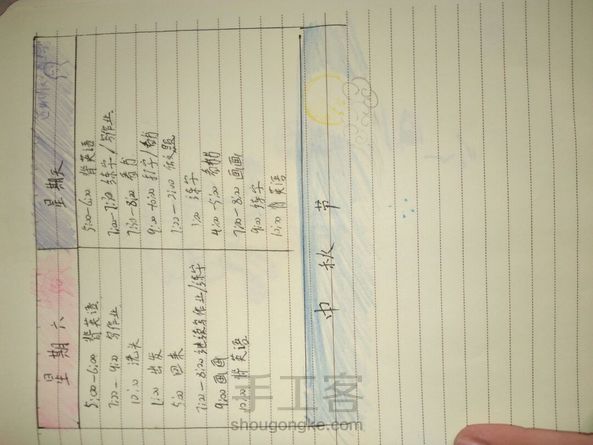 星期六
5:00-6:00 背英语
7:00-9:00 写作业
10:10 洗头
1:00 出发
5:00 回来
7:00-8:00继续写作业/练字
9:00 画画
10:00 背英语
星期天
5:00-6:00 背英语
7:00-7:30 练字/写作业
7:30-8:00 看书
1:00-2:00 做题
3:00 练字
7:00-8:00 画画
9:00 练字
10:00 背英语
中秋节
手工客
shougongke.com